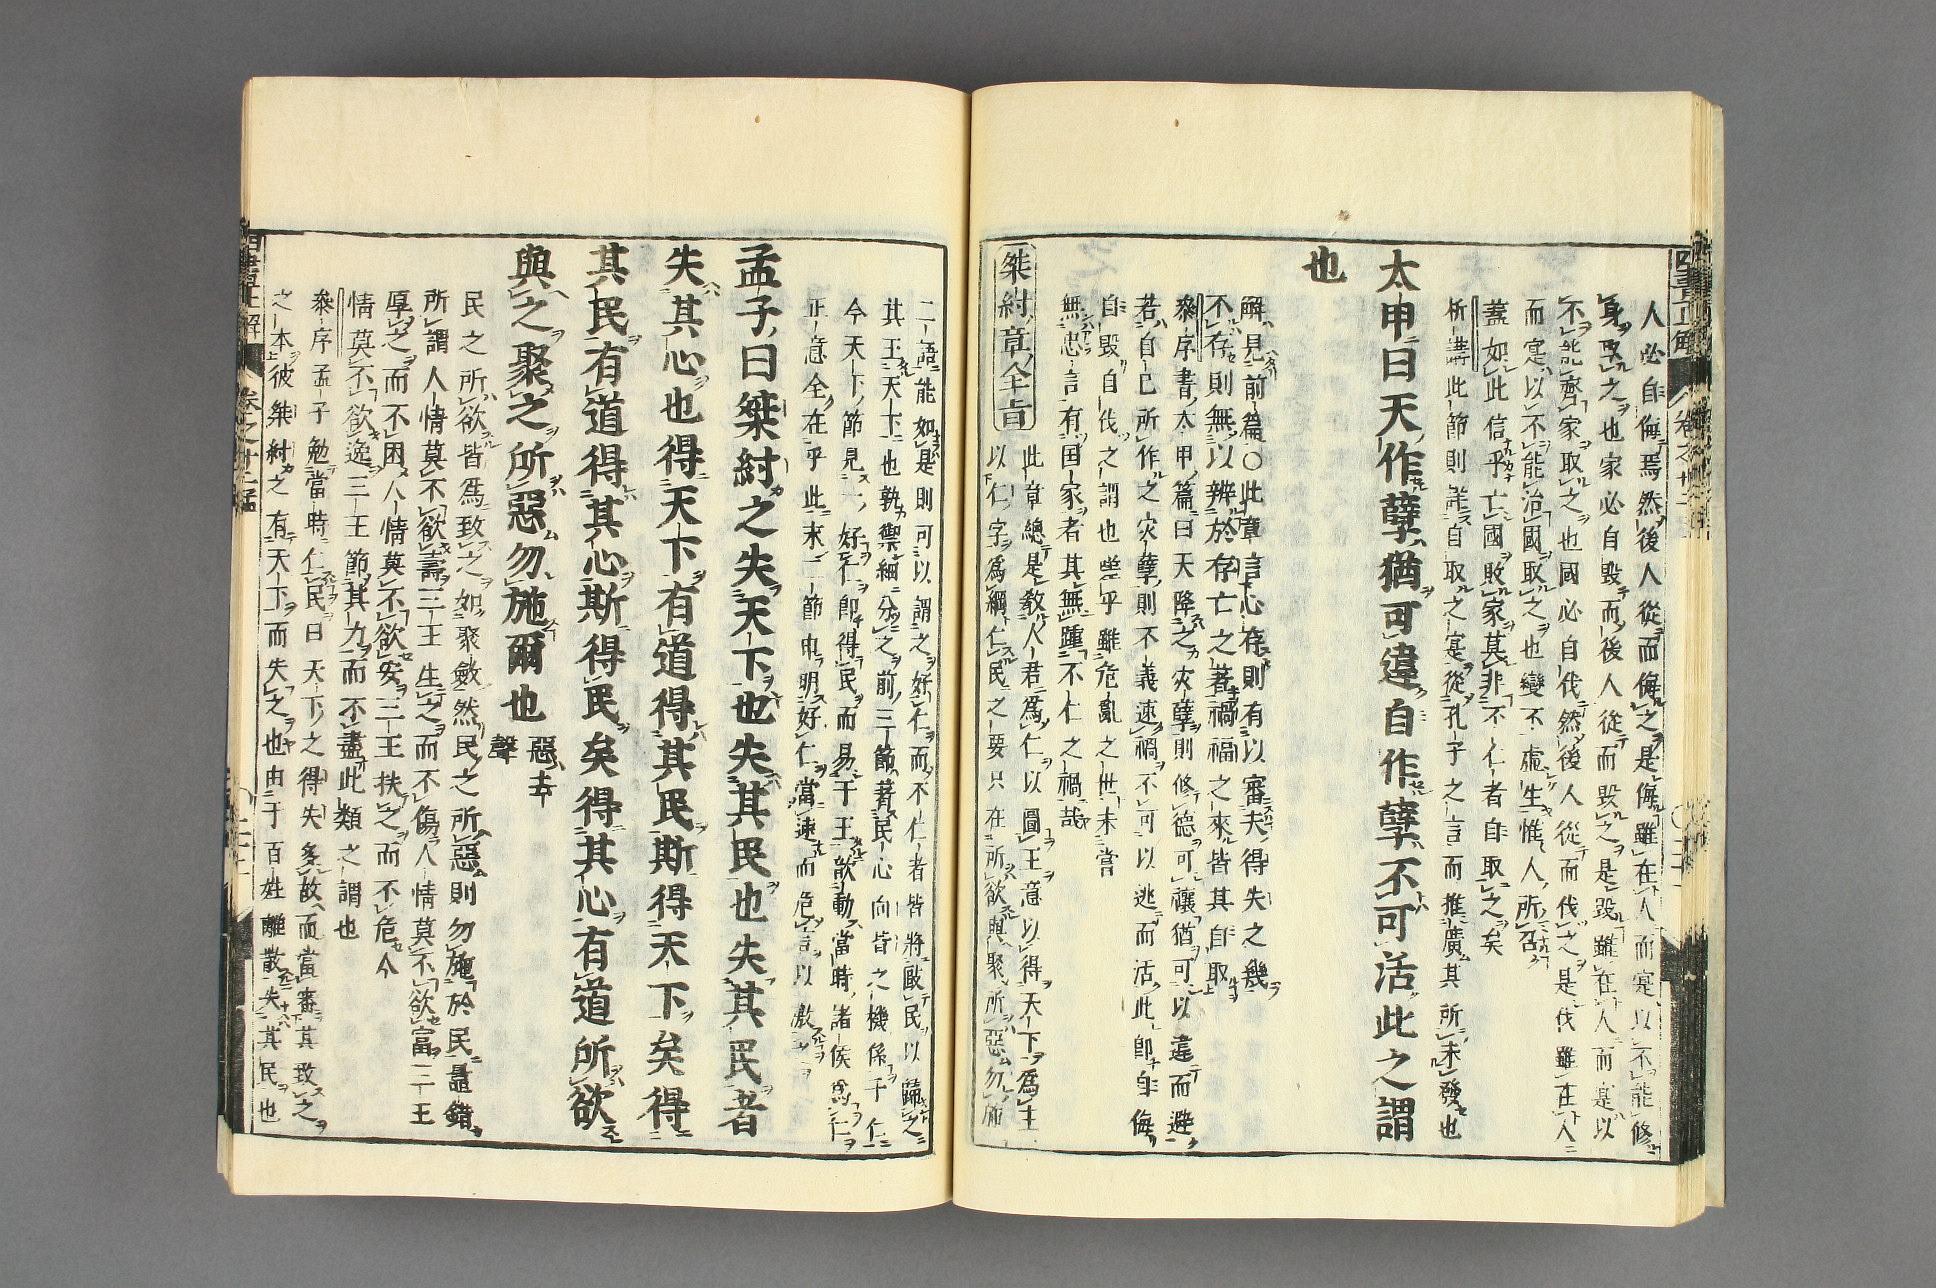 人必自侮焉然後人從而侮之是侮雖在人而寔以不能修
身取之也家必自毀而後人從而毀之是毀雖在人而寔以
不能齊家取之也國必自伐然後人從而伐之是伐雖在人
而寔以不能治國取之也變不虛生惟人所召
蓋如此信乎亡國敗家莫非不仁者自取之矣
析講此節則詳自取之寔從孔子之言而推廣其所未發也
太甲曰天作孽猶可違自作孽不可活此之謂
也
解見前篇○此章言心存則有以審夫得失之幾
不存則無以辨於存亡之著禍福之來皆其自取
叅序書太甲篇曰天降之灾孽則修德可禳猶可以違而避
若自己所作之灾孽則不義速禍不可以逃而活此即自侮
自毀自伐之謂也嗚乎雖危亂之世未嘗
無忠言有国家者其無踵不仁之禍哉
桀紂章全旨
此章總是敎人君爲仁以圖王意以得天下爲主
以仁字爲綱仁民之要只在所欲與聚所惡勿施
二語能如是則可以謂之好仁而不仁者皆將敺民以歸之
其王天下也孰禦細分之前三節著民心向背之機係于仁
今天下節見一好仁即得民而易于王歆動當時諸侯爲仁
正意全在乎此末二節申明好仁當速而危言以激之
孟子曰桀紂之失天下也失其民也失其民者
失其心也得天下有道得其民斯得天下矣得
其民有道得其心斯得民矣得其心有道所欲
與之聚之所惡勿施爾也
惡去
聲
民之所欲皆爲致之如聚斂然民之所惡則勿施於民鼂錯
所謂人情莫不欲壽三王生之而不傷人情莫不欲富三王
厚之而不困人情莫不欲安三王扶之而不危今
情莫不欲逸三王節其力而不盡此類之謂也
叅序孟子勉當時仁民曰天下之得失多故而當審其致之
之本彼桀紂之有天下而失之也由于百姓離散失其民也
四書正解
卷之十二